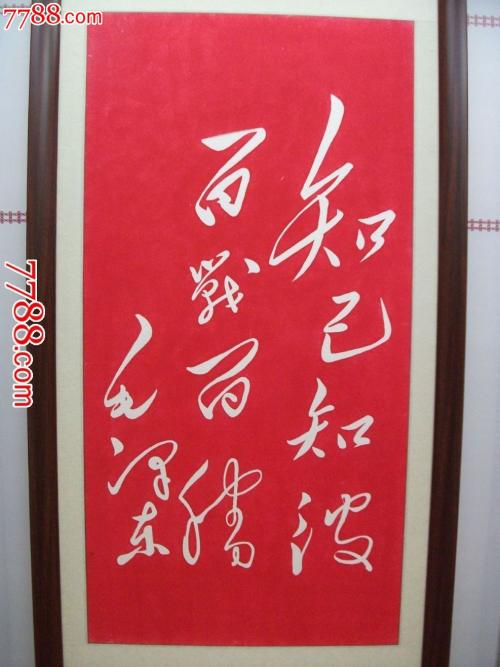 7788.com
知己知彼
百戰百勝
毛泽东
7788.com